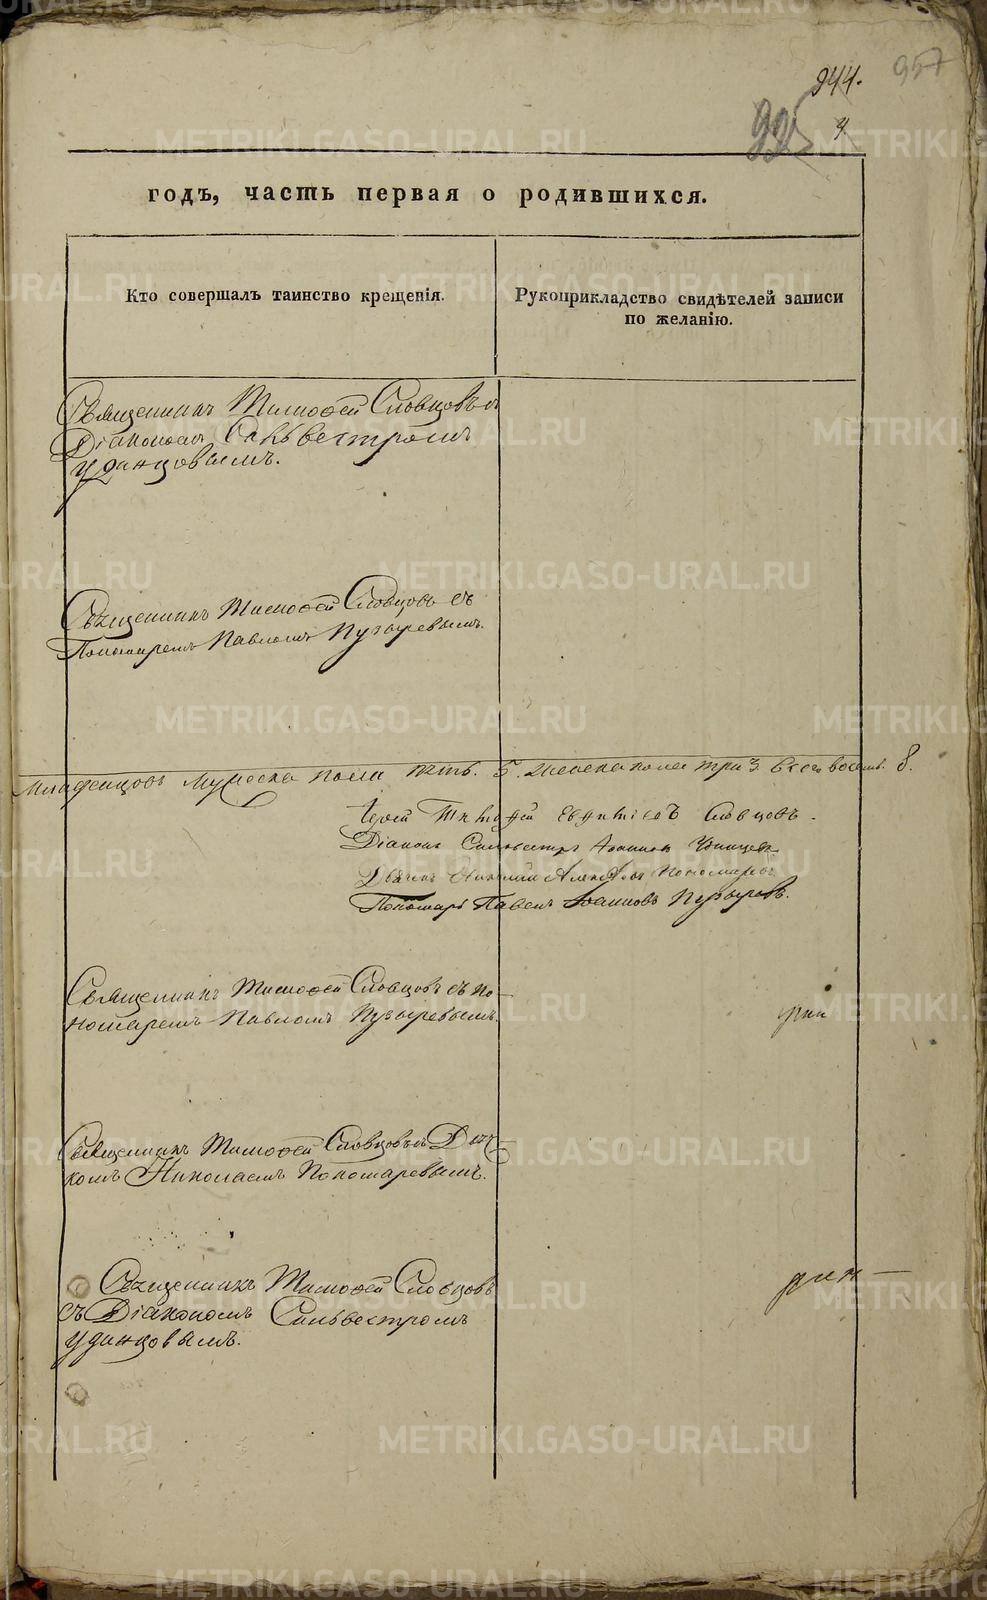 944.
957
995
4
годъ, часть первая о родившихся.
Кто совершалъ таинство крещенія.
Рукоприкладство свидѣтелей записи
по желанію.
Священникъ Тимоѳей Словцовъ съ
Діакономъ Сильвестромъ
Удинцовымъ.
Священникъ Тимоѳей Словцовъ съ
Пономаремъ Павломъ Пузыревымъ.
Младенцовъ Мужеска пола пять. 5. Женска пола три 3 Всего восемь. 8.
Іерей Тимоѳей Словцовъ.
Діаконъ Сильвестръ Іоанновъ Удинцевъ
Дьячекъ Николай Пономаревъ
Пономарь Павелъ Іоанновъ Пузыревъ.
Священникъ Тимоѳей Словцовъ съ По-
номаремъ Павломъ Пузыревымъ.
Священникъ Тимоѳей Словцовъ съ Дьяч-
комъ Николаемъ Пономаревымъ.
Священникъ Тимоѳей Словцовъ
съ Діакономъ Сильвестромъ
Удинцовымъ.
METRIKI.GASO-URAL.RU